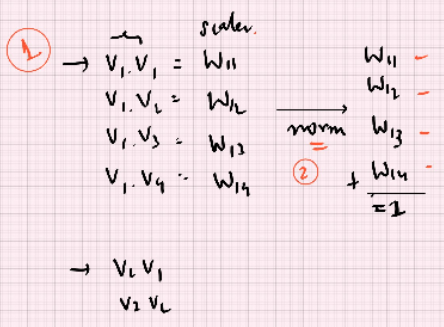 scaler.
1 → V1 . V1 = W11
V1 . V2 = W12
V1 . V3 = W13
V1 . V4 = W14
norm
2
W11 -
W12 -
W13 -
+ W14 -
= 1
→ V2 V1
V2 V2